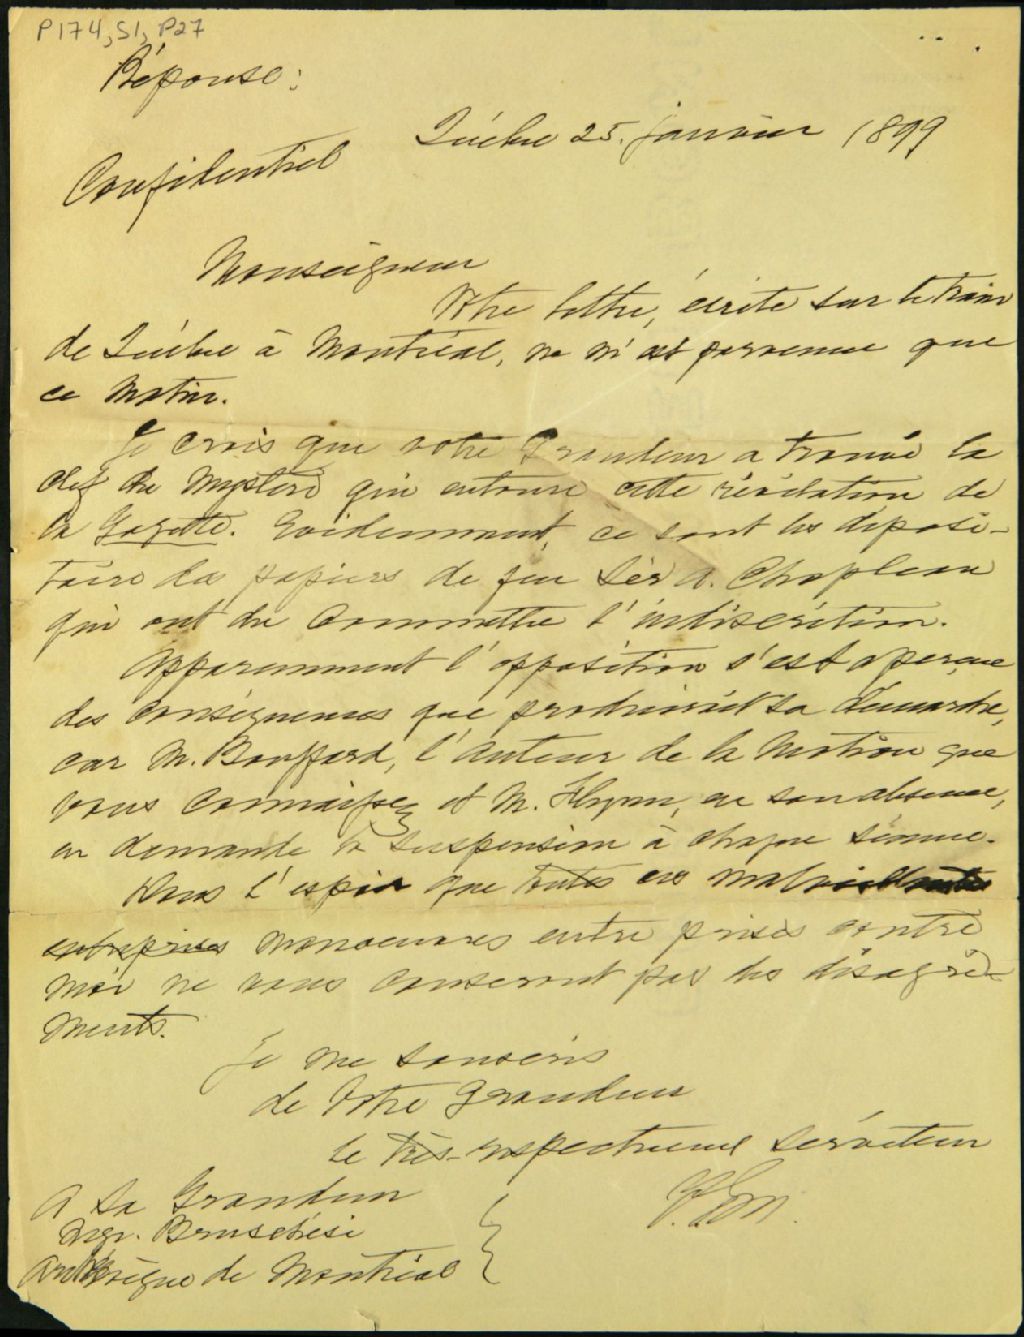 P174, S1, P27
Réponse:
Québec 25. janvier 1899
Confidentiel
Monseigneur
Votre lettre, écrite sur le train
de Québec à Montréal, ne m'est parvenue que
ce matin.
Je crois que votre Grandeur a trouvé la
clef du mystère qui entoure cette révélation de
la Gazette. Evidemment, ce sont les déposi-
taires des papiers de feu Sir A. Chapleau
qui ont du commettre l'indiscrétion.
Apparemment l'opposition s'est aperçue
des conséquences que produirait sa démarche,
car M. Bouffard, l'auteur de la motion que
vous connaissez et M. Flynn, en son absence,
en demande la suspension à chaque séance.
Dans l'espoir que toutes ces
entreprises manoeuvres entreprises contre
moi ne vous causeront pas des désagré-
ments.
Je me souscris
de Votre Grandeur
le très-respectueux serviteur
F.G.M.
A Sa Grandeur
Mgr. Bruchési
Archevêque de Montréal